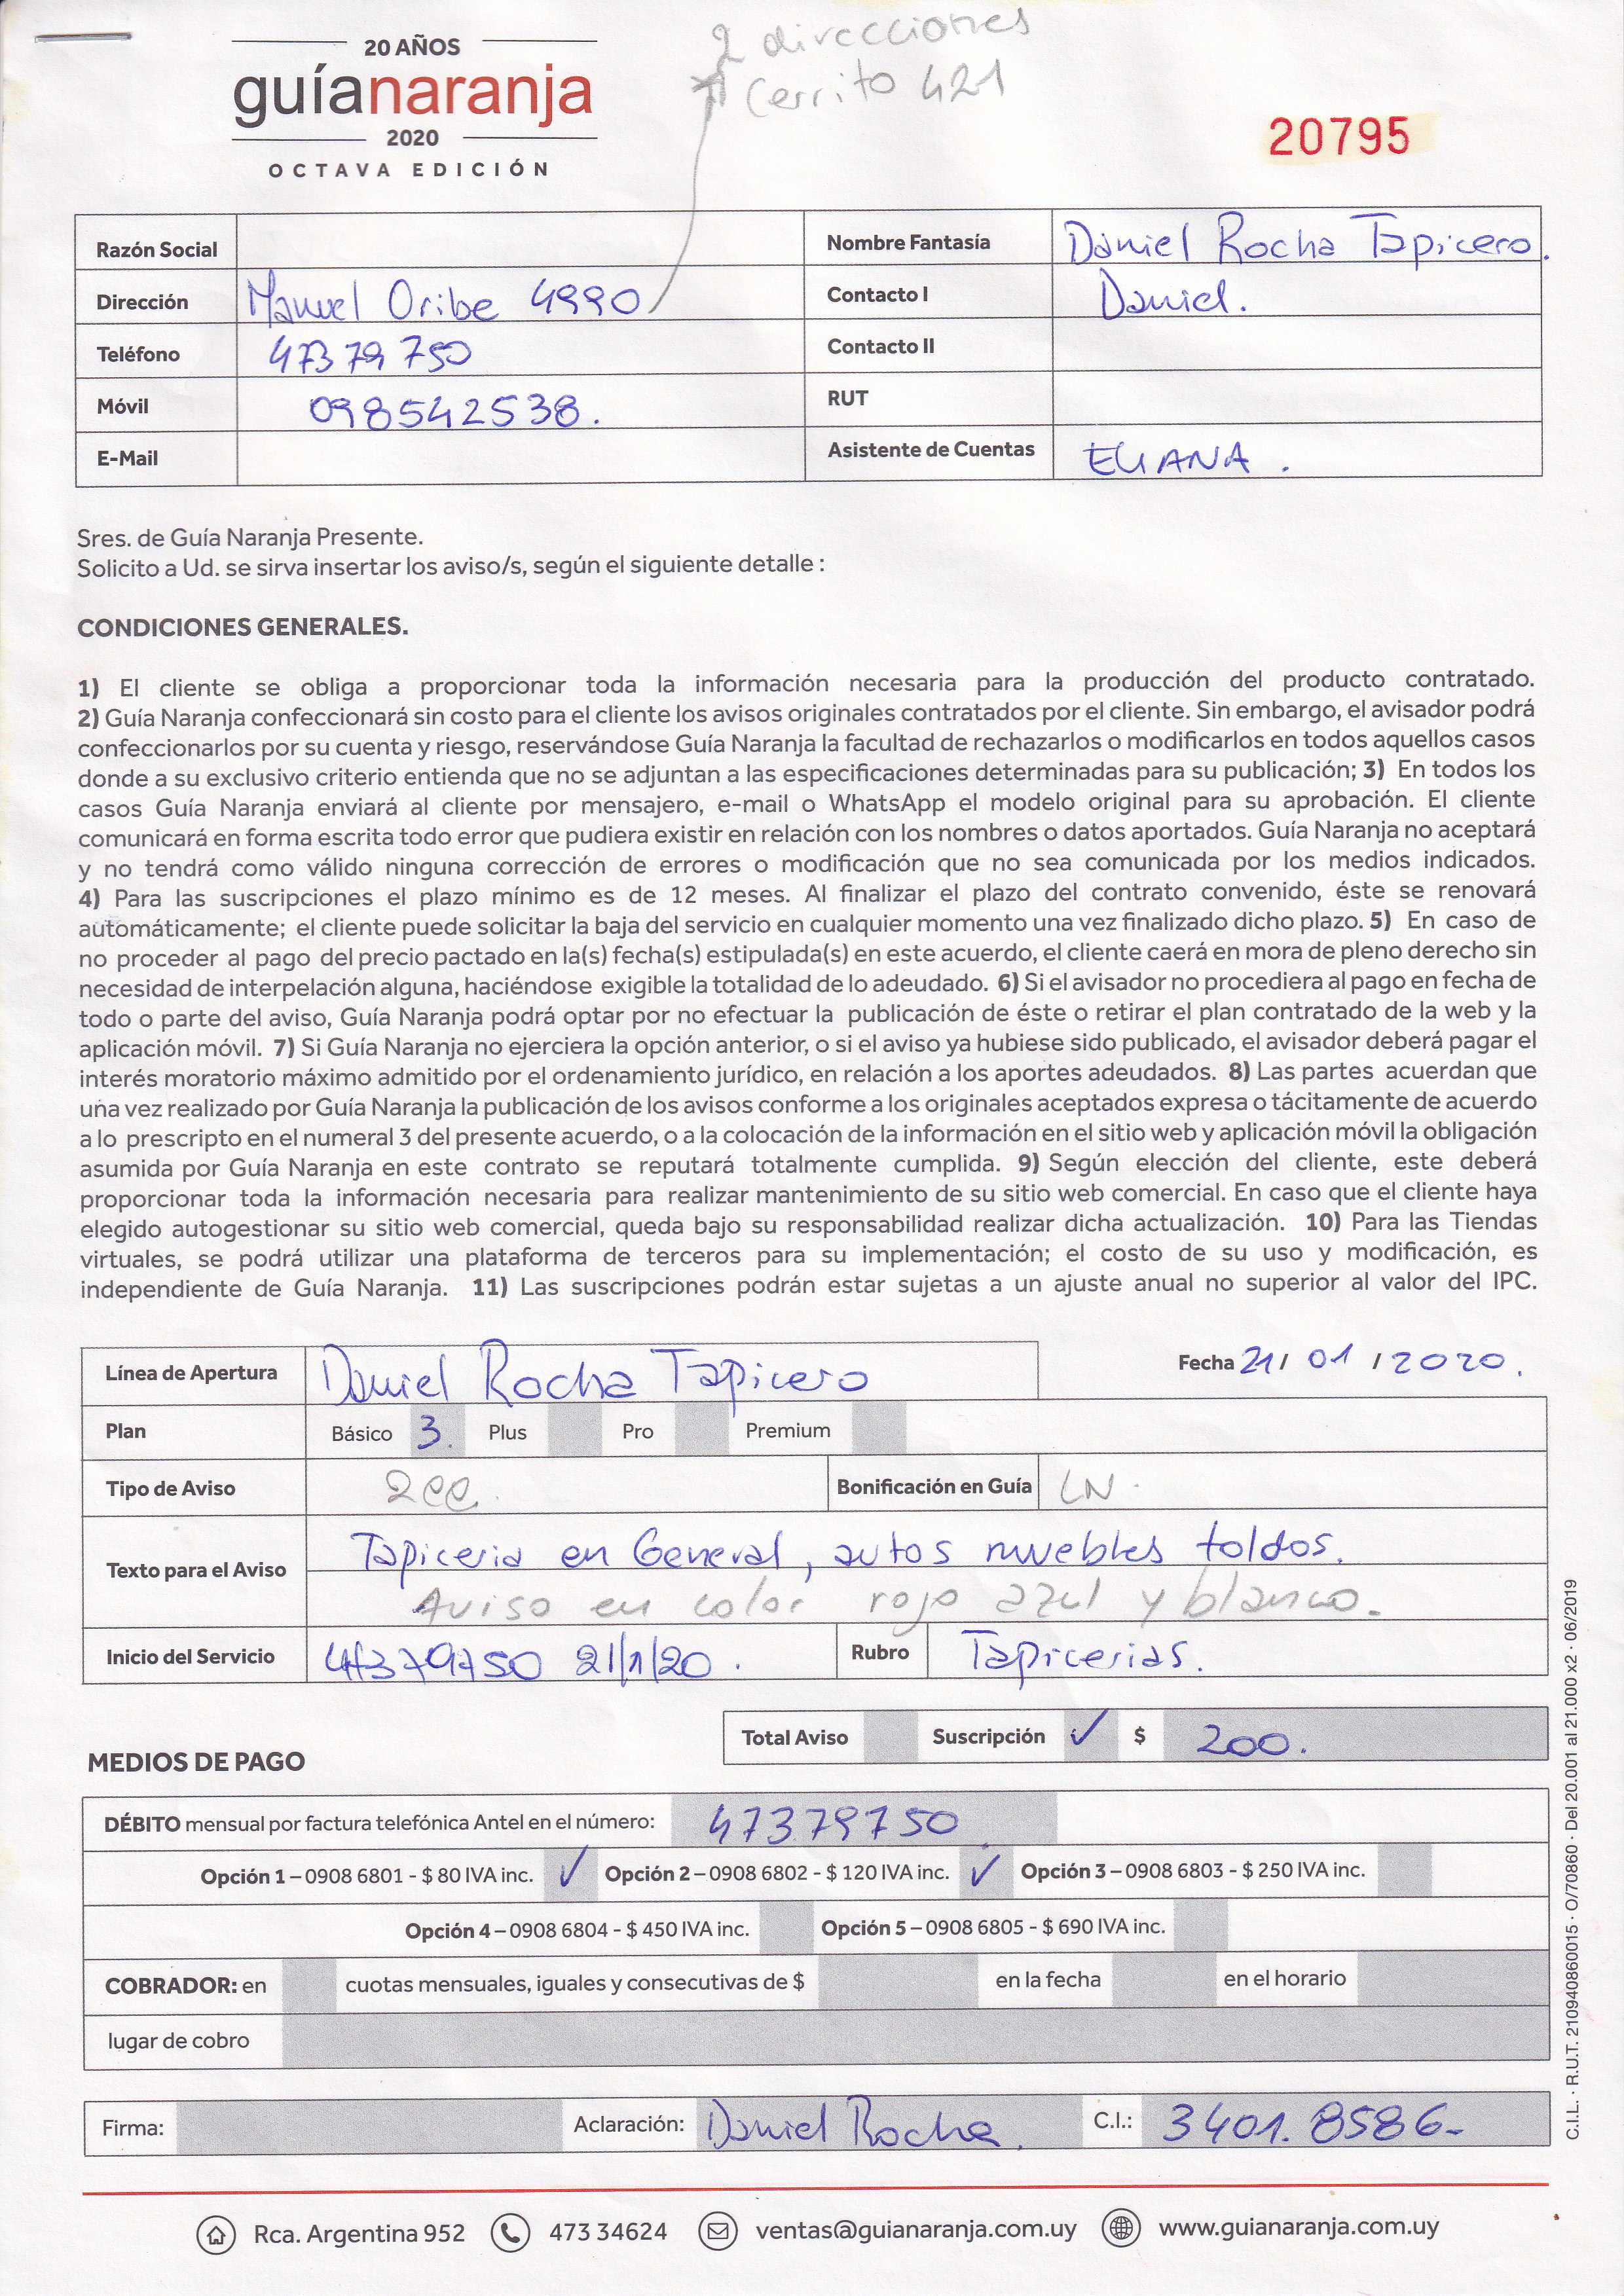 2 direcciones
Cerrito 421
20 AÑOS
guíanaranja
2020
OCTAVA EDICIÓN
20795
Razón Social
Nombre Fantasía Daniel Rocha Tapicero.
Dirección Manuel Oribe 4990
Contacto I Daniel.
Teléfono 473 79 750
Contacto II
Móvil 098542538.
RUT
E-Mail
Asistente de Cuentas ELIANA.
Sres. de Guía Naranja Presente.
Solicito a Ud. se sirva insertar los aviso/s, según el siguiente detalle :
CONDICIONES GENERALES.
1) El cliente se obliga a proporcionar toda la información necesaria para la producción del producto contratado.
2) Guía Naranja confeccionará sin costo para el cliente los avisos originales contratados por el cliente. Sin embargo, el avisador podrá
confeccionarlos por su cuenta y riesgo, reservándose Guía Naranja la facultad de rechazarlos o modificarlos en todos aquellos casos
donde a su exclusivo criterio entienda que no se adjuntan a las especificaciones determinadas para su publicación; 3) En todos los
casos Guía Naranja enviará al cliente por mensajero, e-mail o WhatsApp el modelo original para su aprobación. El cliente
comunicará en forma escrita todo error que pudiera existir en relación con los nombres o datos aportados. Guía Naranja no aceptará
y no tendrá como válido ninguna corrección de errores o modificación que no sea comunicada por los medios indicados.
4) Para las suscripciones el plazo mínimo es de 12 meses. Al finalizar el plazo del contrato convenido, éste se renovará
automáticamente; el cliente puede solicitar la baja del servicio en cualquier momento una vez finalizado dicho plazo. 5) En caso de
no proceder al pago del precio pactado en la(s) fecha(s) estipulada(s) en este acuerdo, el cliente caerá en mora de pleno derecho sin
necesidad de interpelación alguna, haciéndose exigible la totalidad de lo adeudado. 6) Si el avisador no procediera al pago en fecha de
todo o parte del aviso, Guía Naranja podrá optar por no efectuar la publicación de éste o retirar el plan contratado de la web y la
aplicación móvil. 7) Si Guía Naranja no ejerciera la opción anterior, o si el aviso ya hubiese sido publicado, el avisador deberá pagar el
interés moratorio máximo admitido por el ordenamiento jurídico, en relación a los aportes adeudados. 8) Las partes acuerdan que
una vez realizado por Guía Naranja la publicación de los avisos conforme a los originales aceptados expresa o tácitamente de acuerdo
a lo prescripto en el numeral 3 del presente acuerdo, o a la colocación de la información en el sitio web y aplicación móvil la obligación
asumida por Guía Naranja en este contrato se reputará totalmente cumplida. 9) Según elección del cliente, este deberá
proporcionar toda la información necesaria para realizar mantenimiento de su sitio web comercial. En caso que el cliente haya
elegido autogestionar su sitio web comercial, queda bajo su responsabilidad realizar dicha actualización. 10) Para las Tiendas
virtuales, se podrá utilizar una plataforma de terceros para su implementación; el costo de su uso y modificación, es
independiente de Guía Naranja. 11) Las suscripciones podrán estar sujetas a un ajuste anual no superior al valor del IPC.
Línea de Apertura Daniel Rocha Tapicero
Fecha 21/ 01 / 2020.
Plan Básico 3. Plus Pro Premium
Tipo de Aviso 2cc. Bonificación en Guía LN.
Texto para el Aviso
Tapiceria en General, autos muebles toldos.
Aviso en color rojo azul y blanco.
Inicio del Servicio 47379750 21/1/20. Rubro Tapicerias.
Total Aviso Suscripción ✓ $ 200.
MEDIOS DE PAGO
DÉBITO mensual por factura telefónica Antel en el número: 47379750
Opción 1 – 0908 6801 - $ 80 IVA inc. ✓ Opción 2 – 0908 6802 - $ 120 IVA inc. ✓ Opción 3 – 0908 6803 - $ 250 IVA inc.
Opción 4 – 0908 6804 - $ 450 IVA inc. Opción 5 – 0908 6805 - $ 690 IVA inc.
COBRADOR: en cuotas mensuales, iguales y consecutivas de $ en la fecha en el horario
lugar de cobro
Firma: Aclaración: Daniel Rocha. C.I.: 3401.8586-
Rca. Argentina 952 473 34624 ventas@guianaranja.com.uy www.guianaranja.com.uy
C.I.L. · R.U.T. 210940860015 · O/70860 · Del 20.001 al 21.000 x2 · 06/2019